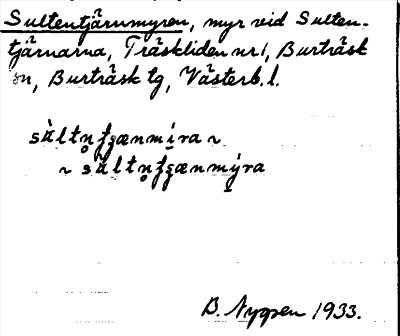 Sultentjärnmyren, myr vid Sulten-
tjärnarna, Träskliden nr 1, Burträsk
sn, Burträsk tg, Västerb. l.
sùltn̥fʒænmi̱ra ~
~ sùltn̥fʒænmýra
B. Nygren 1933.